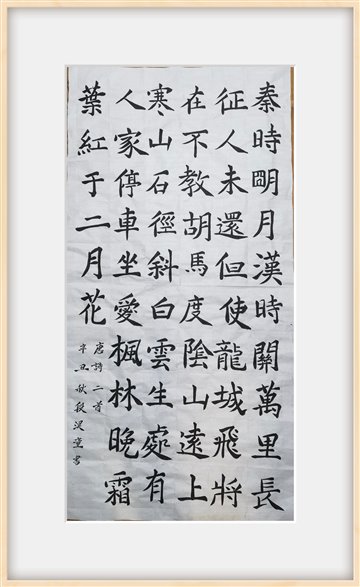 秦時明月漢時關萬里長
征人未還但使龍城飛將
在不教胡馬度陰山遠上
寒山石徑斜白雲生處有
人家停車坐愛楓林晚霜
葉紅于二月花
唐詩二首
辛丑秋段書